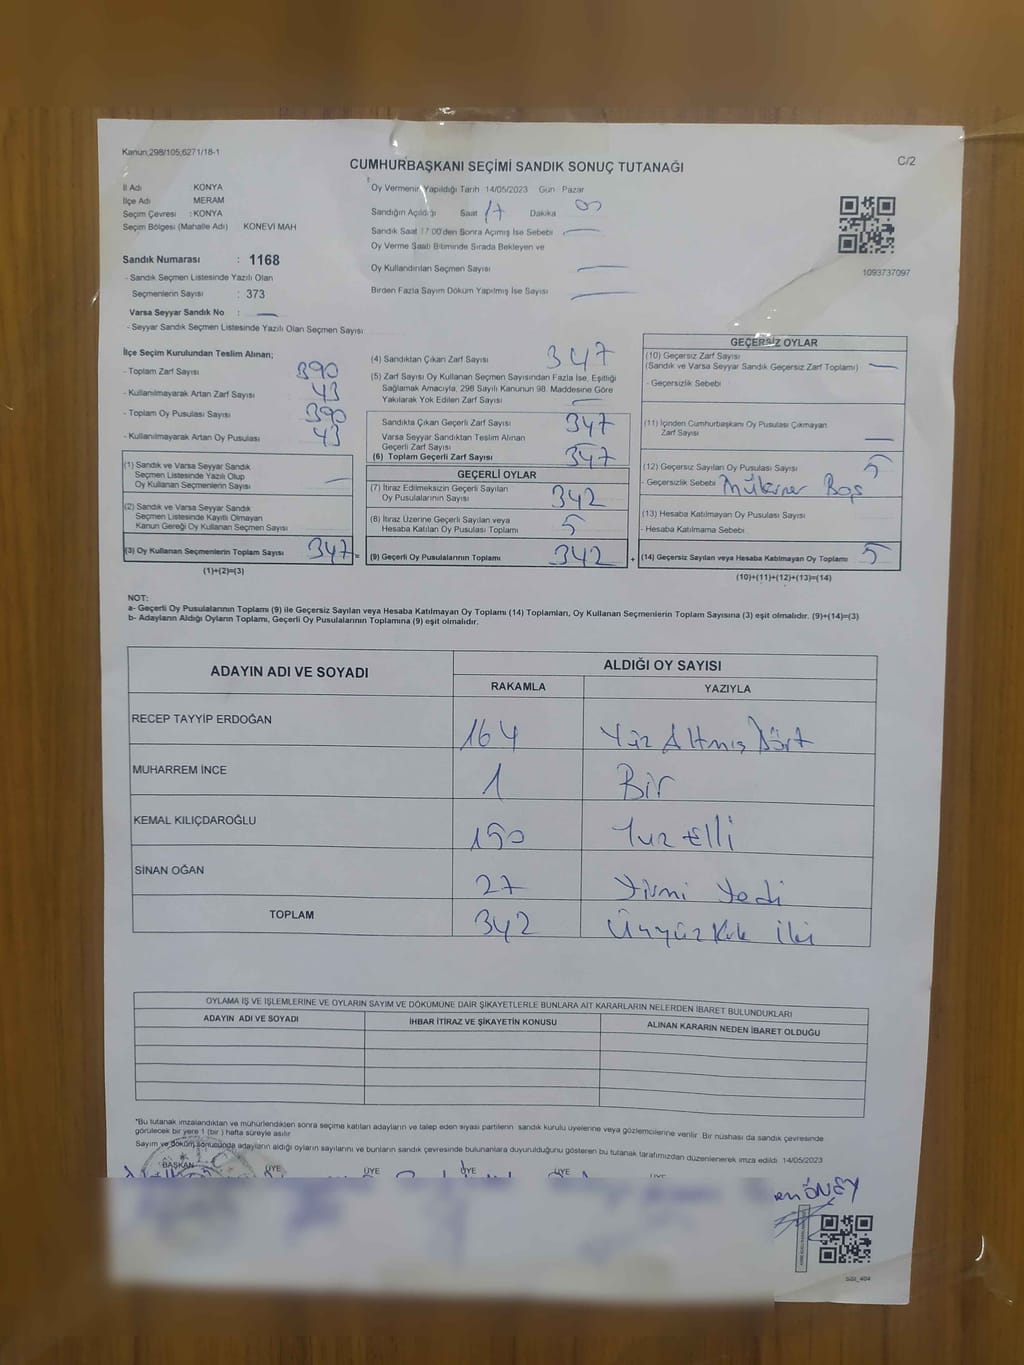 Kanun;298/105;6271/18-1
CUMHURBAŞKANI SEÇİMİ SANDIK SONUÇ TUTANAĞI
C/2
İl Adı KONYA
İlçe Adı MERAM
Seçim Çevresi : KONYA
Seçim Bölgesi (Mahalle Adı) KONEVİ MAH
Sandık Numarası : 1168
- Sandık Seçmen Listesinde Yazılı Olan
Seçmenlerin Sayısı : 373
Varsa Seyyar Sandık No :
- Seyyar Sandık Seçmen Listesinde Yazılı Olan Seçmen Sayısı
Oy Vermenin Yapıldığı Tarih 14/05/2023 Gün Pazar
Sandığın Açıldığı Saat 17 Dakika 00
Sandık Saat 17:00'den Sonra Açımış İse Sebebi
Oy Verme Saati Bitiminde Sırada Bekleyen ve
Oy Kullandırılan Seçmen Sayısı
Birden Fazla Sayım Döküm Yapılmış İse Sayısı
1093737097
İlçe Seçim Kurulundan Teslim Alınan;
- Toplam Zarf Sayısı 390
- Kullanılmayarak Artan Zarf Sayısı 43
- Toplam Oy Pusulası Sayısı 390
- Kullanılmayarak Artan Oy Pusulası 43
(1) Sandık ve Varsa Seyyar Sandık
Seçmen Listesinde Yazılı Olup
Oy Kullanan Seçmenlerin Sayısı
(2) Sandık ve Varsa Seyyar Sandık
Seçmen Listesinde Kayıtlı Olmayan
Kanun Gereği Oy Kullanan Seçmen Sayısı
(3) Oy Kullanan Seçmenlerin Toplam Sayısı 347 =
(1)+(2)=(3)
(4) Sandıktan Çıkan Zarf Sayısı 347
(5) Zarf Sayısı Oy Kullanan Seçmen Sayısından Fazla İse, Eşitliği
Sağlamak Amacıyla, 298 Sayılı Kanunun 98. Maddesine Göre
Yakılarak Yok Edilen Zarf Sayısı
Sandıkta Çıkan Geçerli Zarf Sayısı 347
Varsa Seyyar Sandıktan Teslim Alınan
Geçerli Zarf Sayısı
(6) Toplam Geçerli Zarf Sayısı 347
GEÇERLİ OYLAR
(7) İtiraz Edilmeksizin Geçerli Sayılan
Oy Pusulalarının Sayısı 342
(8) İtiraz Üzerine Geçerli Sayılan veya
Hesaba Katılan Oy Pusulası Toplamı 5
(9) Geçerli Oy Pusulalarının Toplamı 342 +
GEÇERSİZ OYLAR
(10) Geçersiz Zarf Sayısı
(Sandık ve Varsa Seyyar Sandık Geçersiz Zarf Toplamı)
- Geçersizlik Sebebi
(11) İçinden Cumhurbaşkanı Oy Pusulası Çıkmayan
Zarf Sayısı
(12) Geçersiz Sayılan Oy Pusulası Sayısı 5
- Geçersizlik Sebebi Mükerrer Boş
(13) Hesaba Katılmayan Oy Pusulası Sayısı
- Hesaba Katılmama Sebebi
(14) Geçersiz Sayılan veya Hesaba Katılmayan Oy Toplamı 5
(10)+(11)+(12)+(13)=(14)
NOT:
a- Geçerli Oy Pusulalarının Toplamı (9) ile Geçersiz Sayılan veya Hesaba Katılmayan Oy Toplamı (14) Toplamları, Oy Kullanan Seçmenlerin Toplam Sayısına (3) eşit olmalıdır. (9)+(14)=(3)
b- Adayların Aldığı Oyların Toplamı, Geçerli Oy Pusulalarının Toplamına (9) eşit olmalıdır.
ADAYIN ADI VE SOYADI ALDIĞI OY SAYISI
RAKAMLA YAZIYLA
RECEP TAYYİP ERDOĞAN 164 Yüz Altmış Dört
MUHARREM İNCE 1 Bir
KEMAL KILIÇDAROĞLU 150 Yuz Elli
SİNAN OĞAN 27 Yirmi Yedi
TOPLAM 342 Üçyüz Kırk iki
OYLAMA İŞ VE İŞLEMLERİNE VE OYLARIN SAYIM VE DÖKÜMÜNE DAİR ŞİKAYETLERLE BUNLARA AİT KARARLARIN NELERDEN İBARET BULUNDUKLARI
ADAYIN ADI VE SOYADI İHBAR İTİRAZ VE ŞİKAYETİN KONUSU ALINAN KARARIN NEDEN İBARET OLDUĞU
*Bu tutanak imzalandıktan ve mühürlendikten sonra seçime katılan adayların ve talep eden siyasi partilerin sandık kurulu üyelerine veya gözlemcilerine verilir. Bir nüshası da sandık çevresinde
görülecek bir yere 1 (bir) hafta süreyle asılır
Sayım ve döküm sonucunda adayların aldığı oyların sayılarını ve bunların sandık çevresinde bulunanlara duyurulduğunu gösteren bu tutanak tarafımızdan düzenlenerek imza edildi. 14/05/2023
BAŞKAN ÜYE ÜYE ÜYE ÜYE ÜYE
ÖNEY